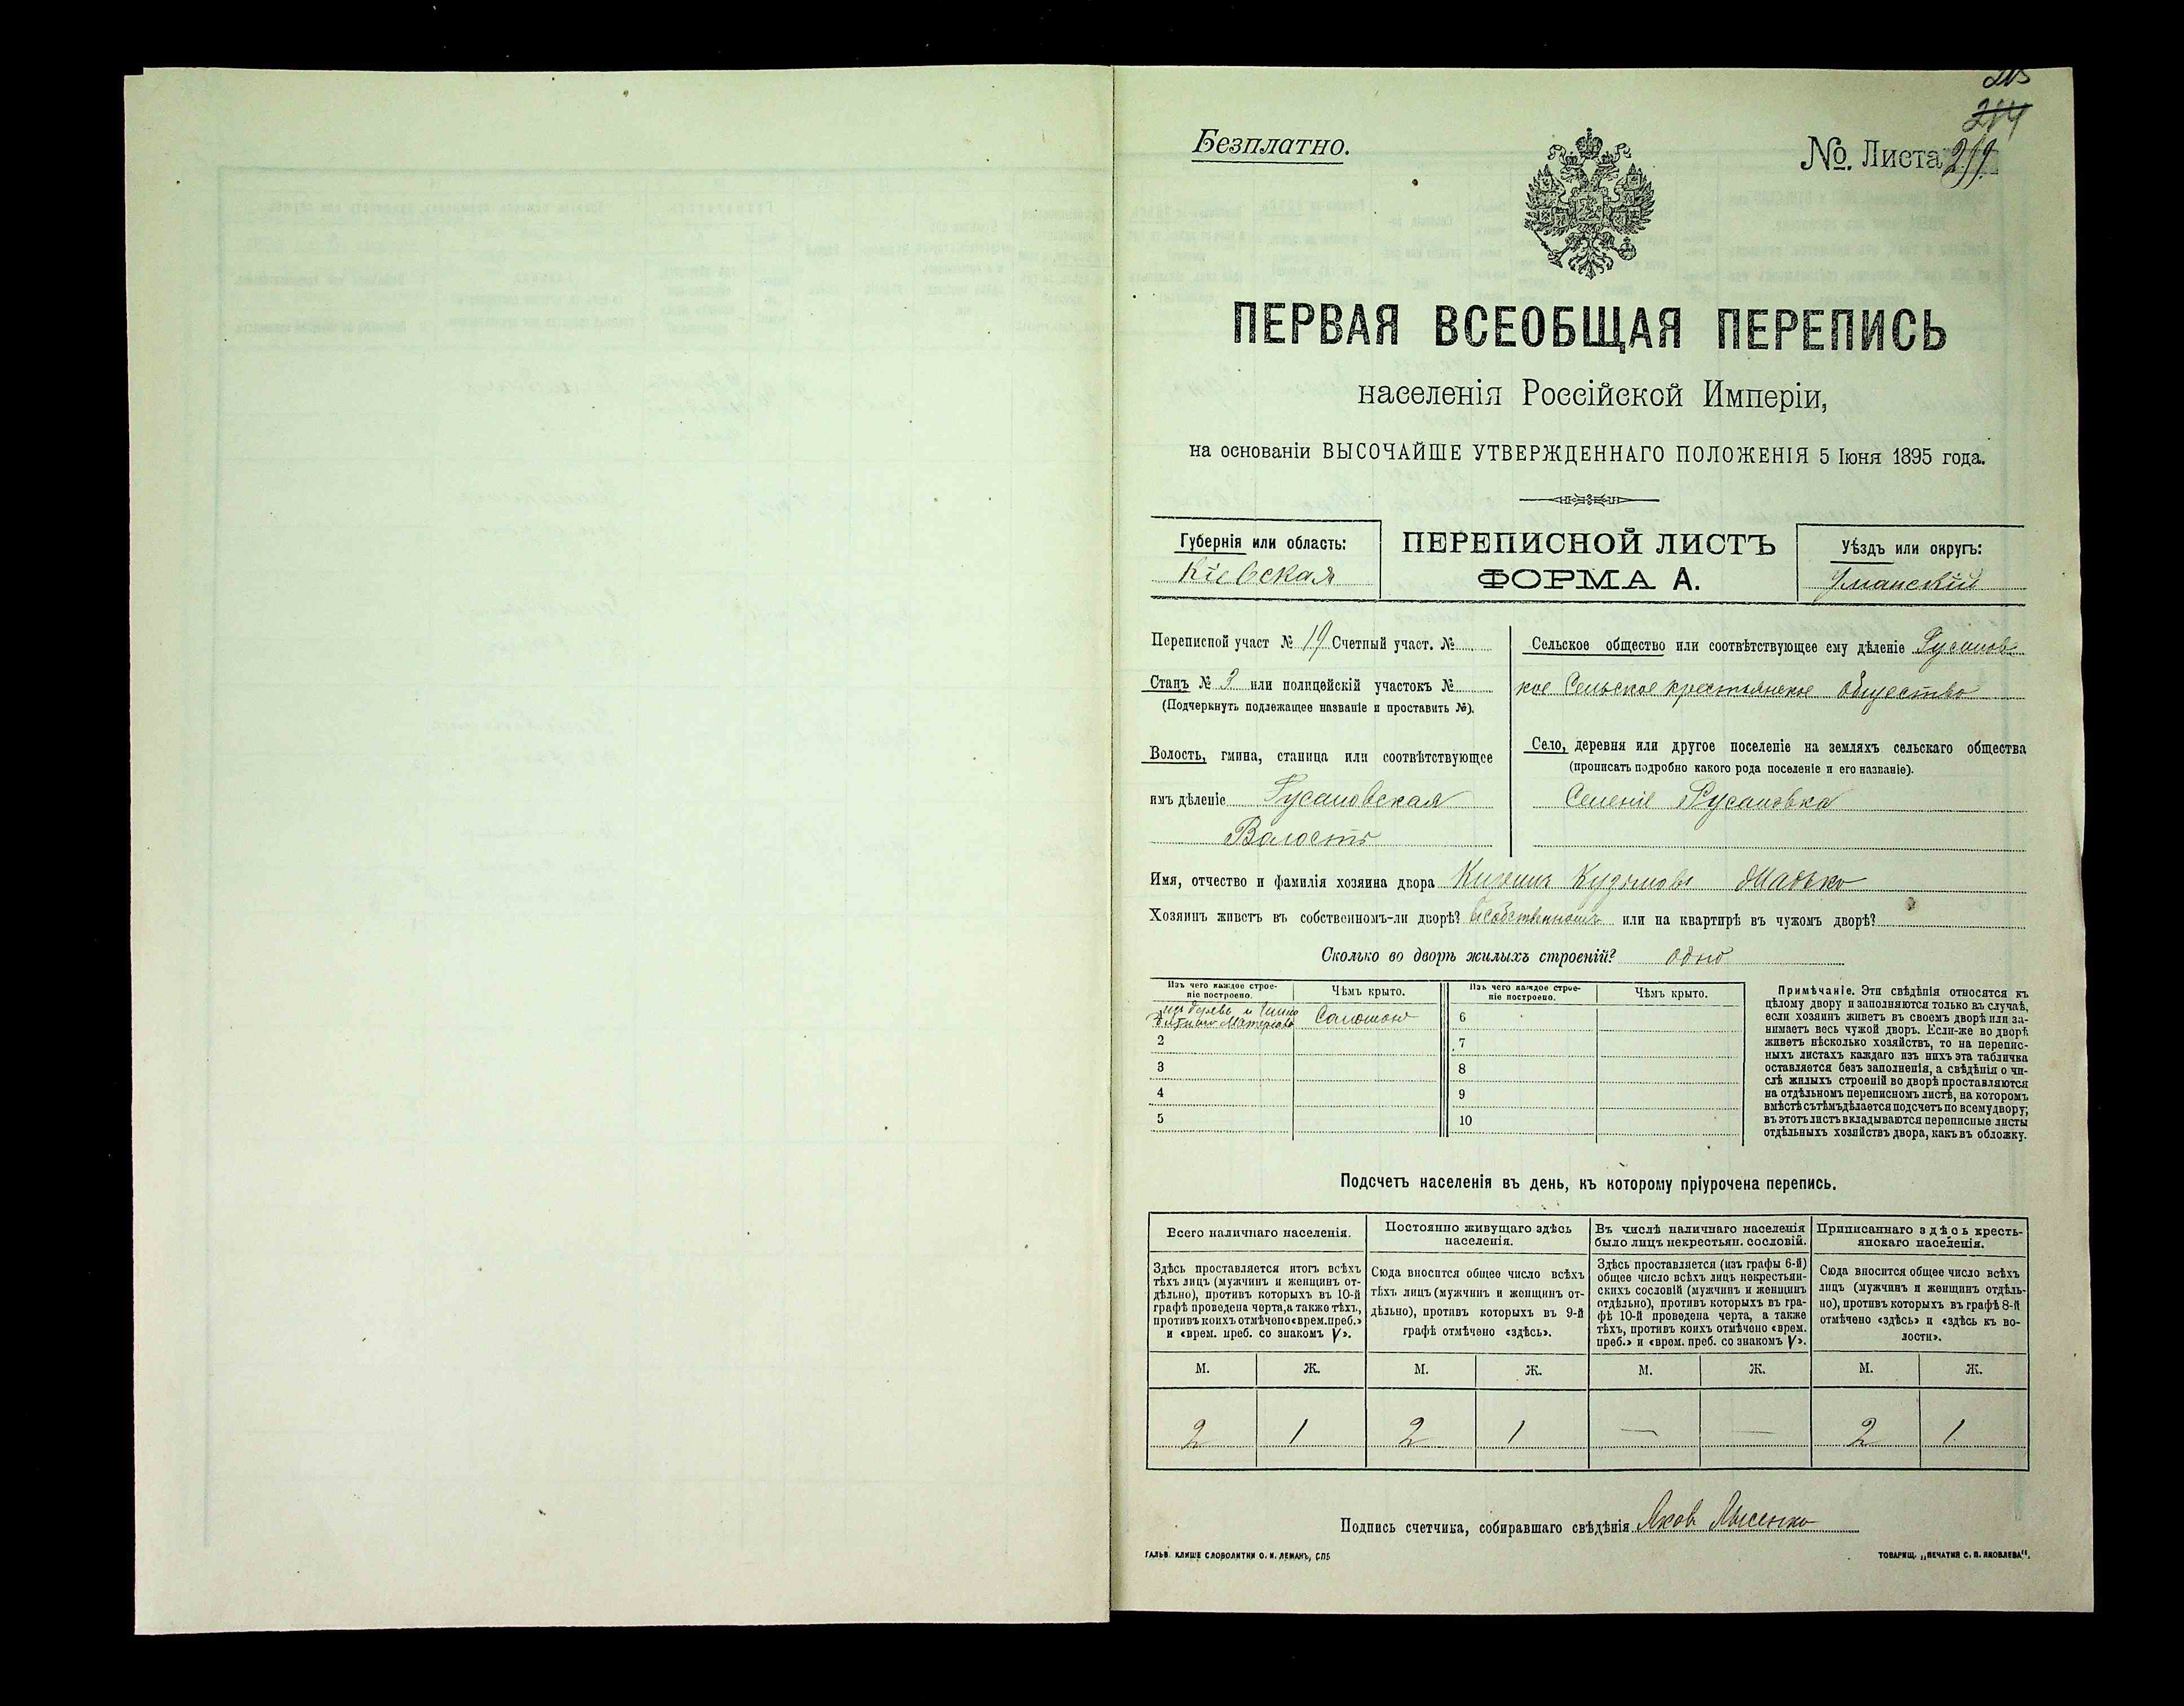 Безплатно.
№. Листа
ПЕРВАЯ ВСЕОБЩАЯ ПЕРЕПИСЬ
населенія Россійской Имперіи,
на основаніи ВЫСОЧАЙШЕ УТВЕРЖДЕННАГО ПОЛОЖЕНІЯ 5 Іюня 1895 года.
Губернія или область:
Кіевская
ПЕРЕПИСНОЙ ЛИСТЪ
ФОРМА А.
Уѣздъ или округъ:
Уманскій
Переписной участ № 19 Счетный участ. №
Станъ № 3 или полицейскій участокъ №
(Подчеркнуть подлежащее названіе и проставить №).
Волость, гмина, станица или соотвѣтствующее
имъ дѣленіе Русаловская
Волость
Сельское общество или соотвѣтствующее ему дѣленіе Русалов
кое Сельское крестьянское общество
Село, деревня или другое поселеніе на земляхъ сельскаго общества
(прописать подробно какого рода поселеніе и его названіе).
Селеніе Русаловка
Имя, отчество и фамилія хозяина двора Кузьмовъ
Хозяинъ живетъ въ собственномъ-ли дворѣ? Всобственномъ или на квартирѣ въ чужомъ дворѣ?
Сколько во дворѣ жилыхъ строеній? одно
Изъ чего каждое строе-
ніе построено.
Чѣмъ крыто.
Изъ чего каждое строе-
ніе построено.
Чѣмъ крыто.
изъ дерева и глино
битнаго Матеріала Соломою 6
2 7
3 8
4 9
5 10
Примѣчаніе. Эти свѣдѣнія относятся къ
цѣлому двору и заполняются только въ случаѣ,
если хозяинъ живетъ въ своемъ дворѣ или за-
нимаетъ весь чужой дворъ. Если-же во дворѣ
живетъ нѣсколько хозяйствъ, то на перепис-
ныхъ листахъ каждаго изъ нихъ эта табличка
оставляется безъ заполненія, а свѣдѣнія о чи-
слѣ жилыхъ строеній во дворѣ проставляются
на отдѣльномъ переписномъ листѣ, на которомъ
вмѣстѣ съ тѣмъ дѣлается подсчетъ по всему двору;
въ этотъ листъ вкладываются переписные листы
отдѣльныхъ хозяйствъ двора, какъ въ обложку.
Подсчетъ населенія въ день, къ которому пріурочена перепись.
Всего наличнаго населенія.
Здѣсь проставляется итогъ всѣхъ
тѣхъ лицъ (мужчинъ и женщинъ от-
дѣльно), противъ которыхъ въ 10-й
графѣ проведена черта, а также тѣхъ,
противъ коихъ отмѣчено «врем. преб.»
и «врем. преб. со знакомъ V».
Постоянно живущаго здѣсь
населенія.
Сюда вносится общее число всѣхъ
тѣхъ лицъ (мужчинъ и женщинъ от-
дѣльно), противъ которыхъ въ 9-й
графѣ отмѣчено «здѣсь».
Въ числѣ наличнаго населенія
было лицъ некрестьян. сословій.
Здѣсь проставляется (изъ графы 6-й)
общее число всѣхъ лицъ некрестьян-
скихъ сословій (мужчинъ и женщинъ
отдѣльно), противъ которыхъ въ гра-
фѣ 10-й проведена черта, а также
тѣхъ, противъ коихъ отмѣчено «врем.
преб.» и «врем. преб. со знакомъ V».
Приписаннаго здѣсь кресть-
янскаго населенія.
Сюда вносится общее число всѣхъ
лицъ (мужчинъ и женщинъ отдѣль-
но), противъ которыхъ въ графѣ 8-й
отмѣчено «здѣсь» и «здѣсь къ во-
лости».
М. Ж. М. Ж. М. Ж. М. Ж.
2 1 2 1 — — 2 1
Подпись счетчика, собиравшаго свѣдѣнія Яков Лысенко
ГАЛЬВ. КЛИШЕ СЛОВОЛИТНИ О. И. ЛЕМАНЪ, СПБ
ТОВАРИЩ. „ПЕЧАТНЯ С. П. ЯКОВЛЕВА“.